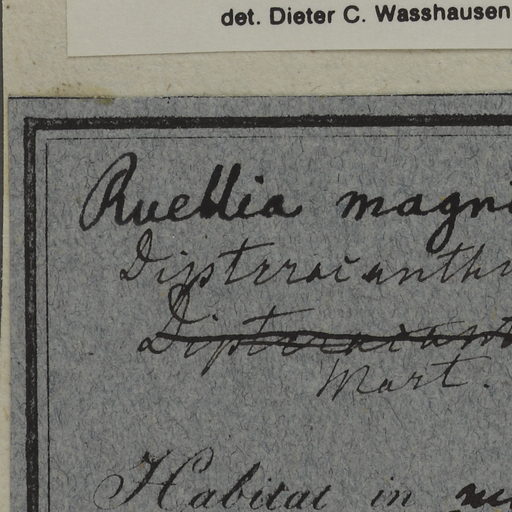 det. Dieter C. Wasshausen
Ruellia magni
Dipteracanthu
Dipteracant
Mart.
Habitat in